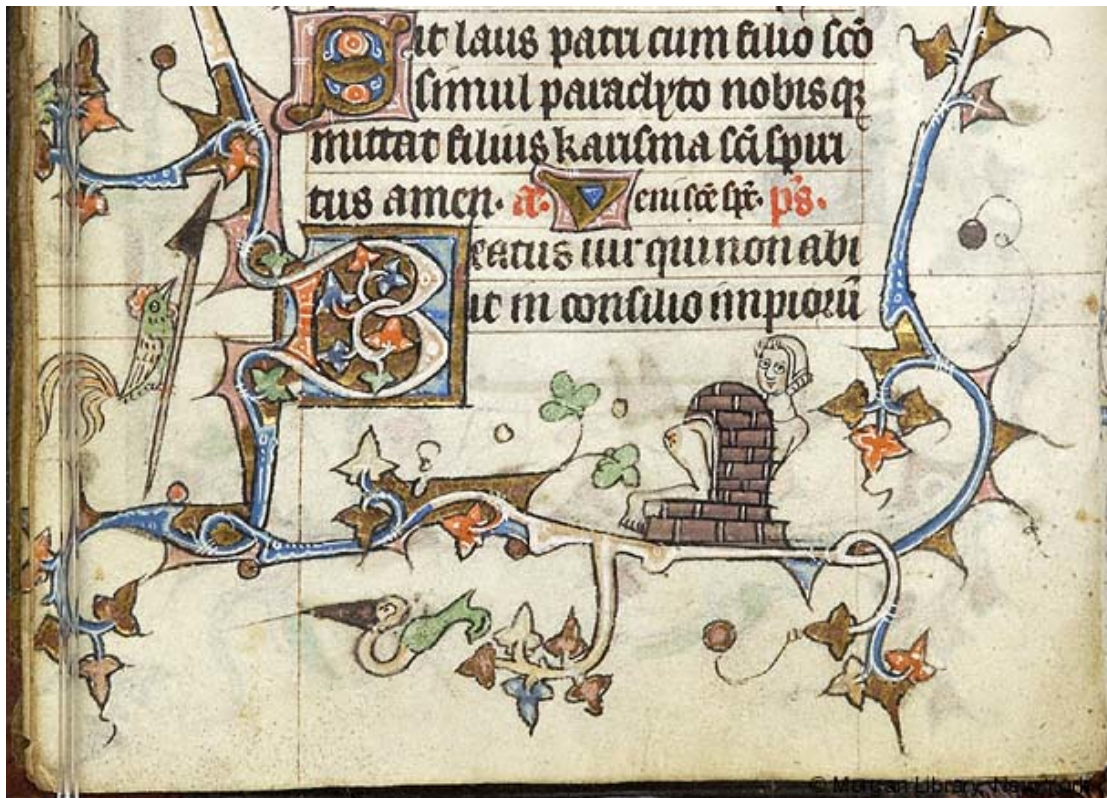 Sit laus patri cum filio scō
simul paraclyto nobisqꝫ
mittat filius karisma sc̄i spiri
tus amen. a. Veni sc̄e sp̄c. p̄s.
Beatus uir qui non abi
it in consilio impiorū
© Morgan Library, New York